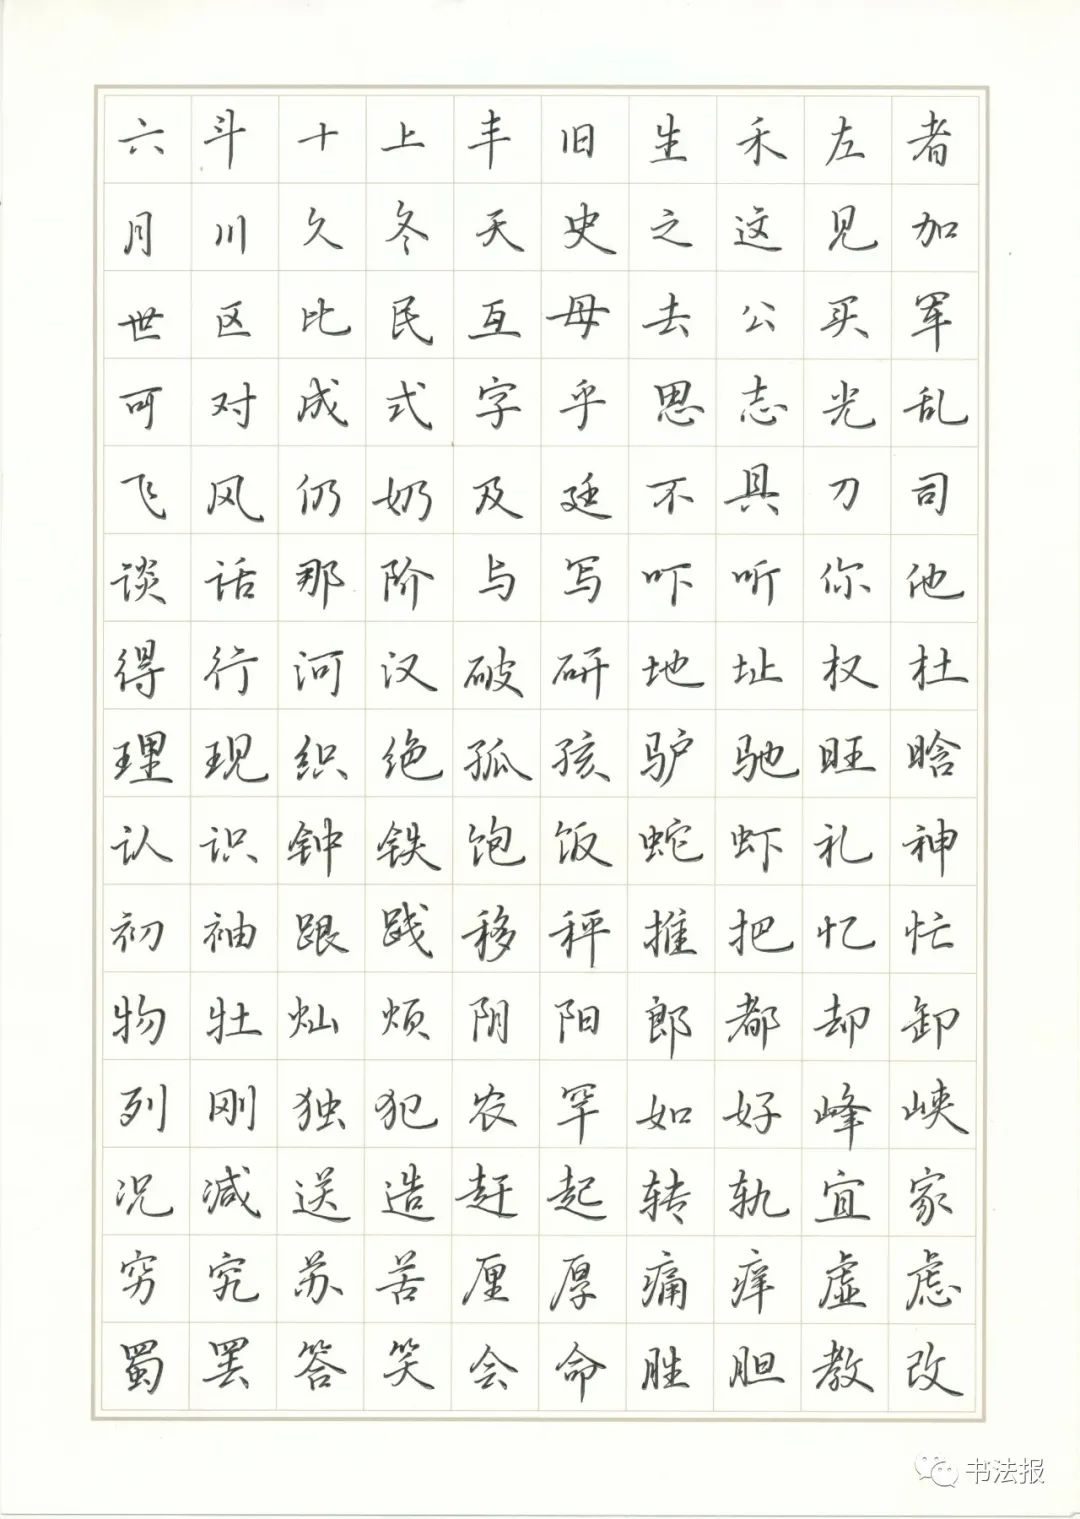 六斗十上丰旧生禾左者
月川久冬天史之这见加
世区比民互母去公买军
可对成式字乎思志光乱
飞风仍奶及廷不具刀司
谈话那阶与写吓听你他
得行河汉破研地址权杜
理现织绝孤孩驴驰旺晗
认识钟铁饱饭蛇虾礼神
初袖跟践移秤推把忆忙
物牡灿烦阴阳郎都却卸
列刚独犯农罕如好峰峡
况减送造赶起转轨宜家
穷究苏苦厘厚痛痒虚虑
蜀罢答笑会命胜胆教改
书法报